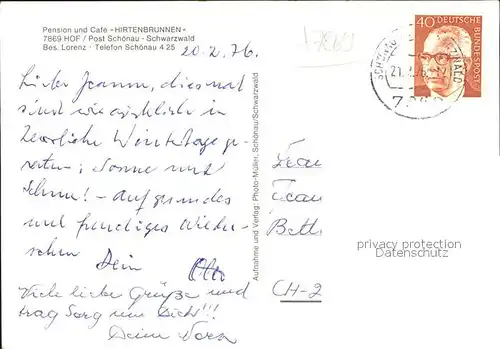 Pension und Café «HIRTENBRUNNEN»
7869 HOF / Post Schönau - Schwarzwald
Bes. Lorenz · Telefon Schönau 4 25
20.2.76.
40 DEUTSCHE BUNDESPOST
Aufnahme und Verlag: Photo-Müller, Schönau/Schwarzwald
Liebe Jeanne, diesmal
sind wir wirklich in
herrliche Wintertage ge-
raten; Sonne und
Schnee! - Auf gesundes
und freudiges Wieder-
sehen Dein Otto
Viele liebe Grüße und
trag Sorg um Dich!!!
Deine Vera
Frau
Beth
CH-2
privacy protection
Datenschutz